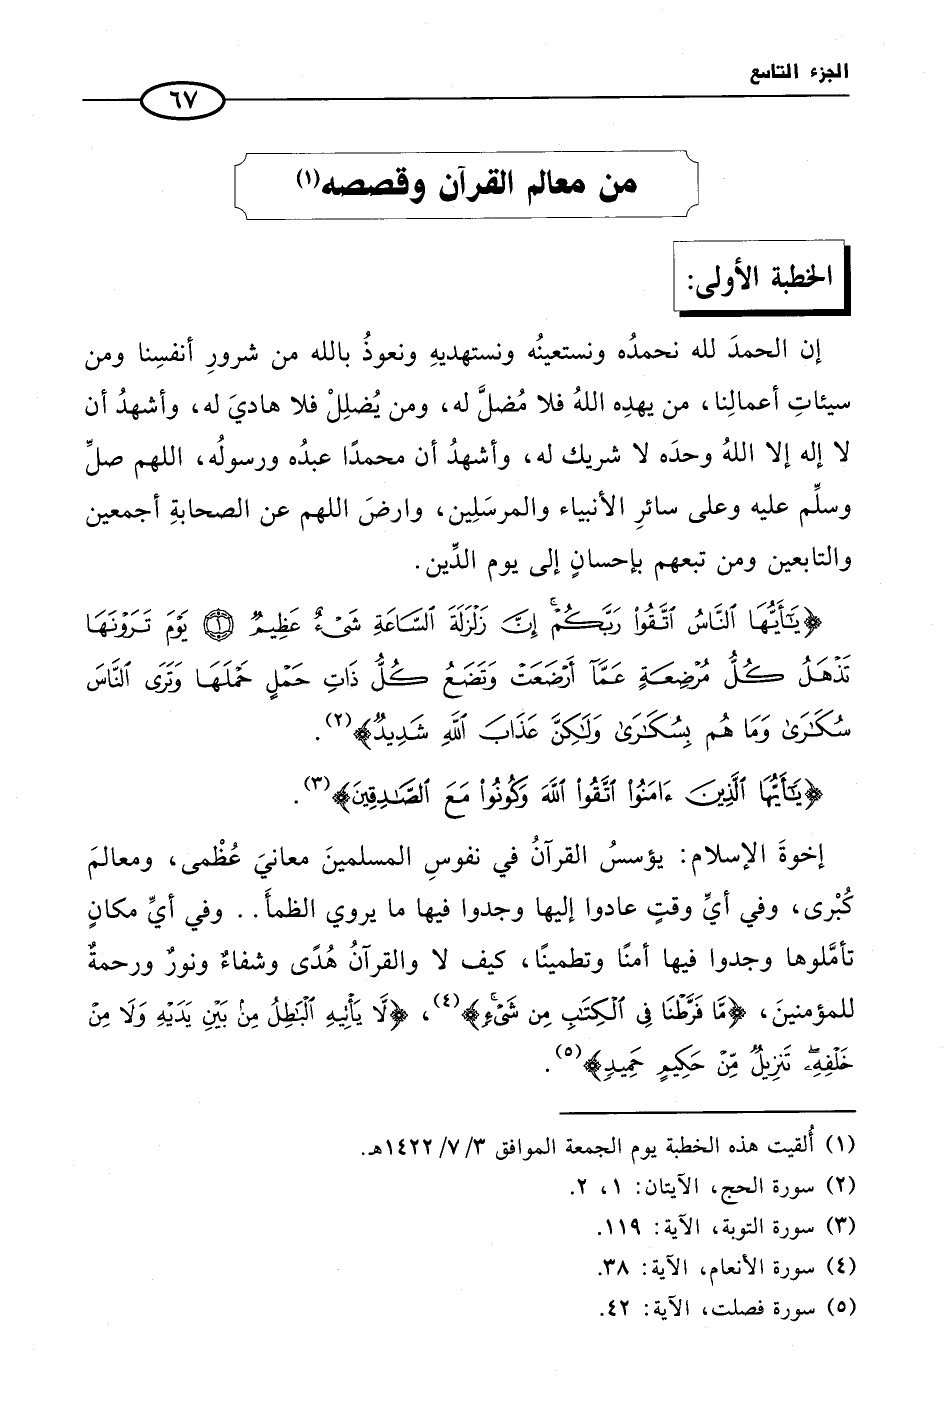 الجزء التاسع
٦٧
من معالم القرآن وقصصه(١)
الخطبة الأولى:
إن الحمدَ لله نحمدُه ونستعينُه ونستهديهِ ونعوذُ بالله من شرورِ أنفسِنا ومن
سيئاتِ أعمالِنا، من يهدِه اللهُ فلا مُضلَّ له، ومن يُضلِلْ فلا هاديَ له، وأشهدُ أن
لا إله إلا اللهُ وحدَه لا شريك له، وأشهدُ أن محمدًا عبدُه ورسولُه، اللهم صلِّ
وسلِّم عليه وعلى سائرِ الأنبياء والمرسَلِين، وارضَ اللهم عن الصحابةِ أجمعين
والتابعين ومن تبعهم بإحسانٍ إلى يوم الدِّين.
﴿يَٰٓأَيُّهَا ٱلنَّاسُ ٱتَّقُوا۟ رَبَّكُمْ ۚ إِنَّ زَلْزَلَةَ ٱلسَّاعَةِ شَىْءٌ عَظِيمٌ ۝١ يَوْمَ تَرَوْنَهَا
تَذْهَلُ كُلُّ مُرْضِعَةٍ عَمَّآ أَرْضَعَتْ وَتَضَعُ كُلُّ ذَاتِ حَمْلٍ حَمْلَهَا وَتَرَى ٱلنَّاسَ
سُكَٰرَىٰ وَمَا هُم بِسُكَٰرَىٰ وَلَٰكِنَّ عَذَابَ ٱللَّهِ شَدِيدٌ﴾(٢).
﴿يَٰٓأَيُّهَا ٱلَّذِينَ ءَامَنُوا۟ ٱتَّقُوا۟ ٱللَّهَ وَكُونُوا۟ مَعَ ٱلصَّٰدِقِينَ﴾(٣).
إخوةَ الإسلام: يؤسسُ القرآنُ في نفوسِ المسلمينَ معانيَ عُظْمى، ومعالمَ
كُبْرى، وفي أيِّ وقتٍ عادوا إليها وجدوا فيها ما يروي الظمأَ.. وفي أيِّ مكانٍ
تأمَّلوها وجدوا فيها أمنًا وتطمينًا، كيف لا والقرآنُ هُدًى وشفاءٌ ونورٌ ورحمةٌ
للمؤمنينَ، ﴿مَّا فَرَّطْنَا فِى ٱلْكِتَٰبِ مِن شَىْءٍ ۚ﴾(٤)، ﴿لَّا يَأْتِيهِ ٱلْبَٰطِلُ مِنۢ بَيْنِ يَدَيْهِ وَلَا مِنْ
خَلْفِهِۦ ۖ تَنزِيلٌ مِّنْ حَكِيمٍ حَمِيدٍ﴾(٥).
(١) أُلقيت هذه الخطبة يوم الجمعة الموافق ٣/ ٧/ ١٤٢٢هـ.
(٢) سورة الحج، الآيتان: ١، ٢.
(٣) سورة التوبة، الآية: ١١٩.
(٤) سورة الأنعام، الآية: ٣٨.
(٥) سورة فصلت، الآية: ٤٢.